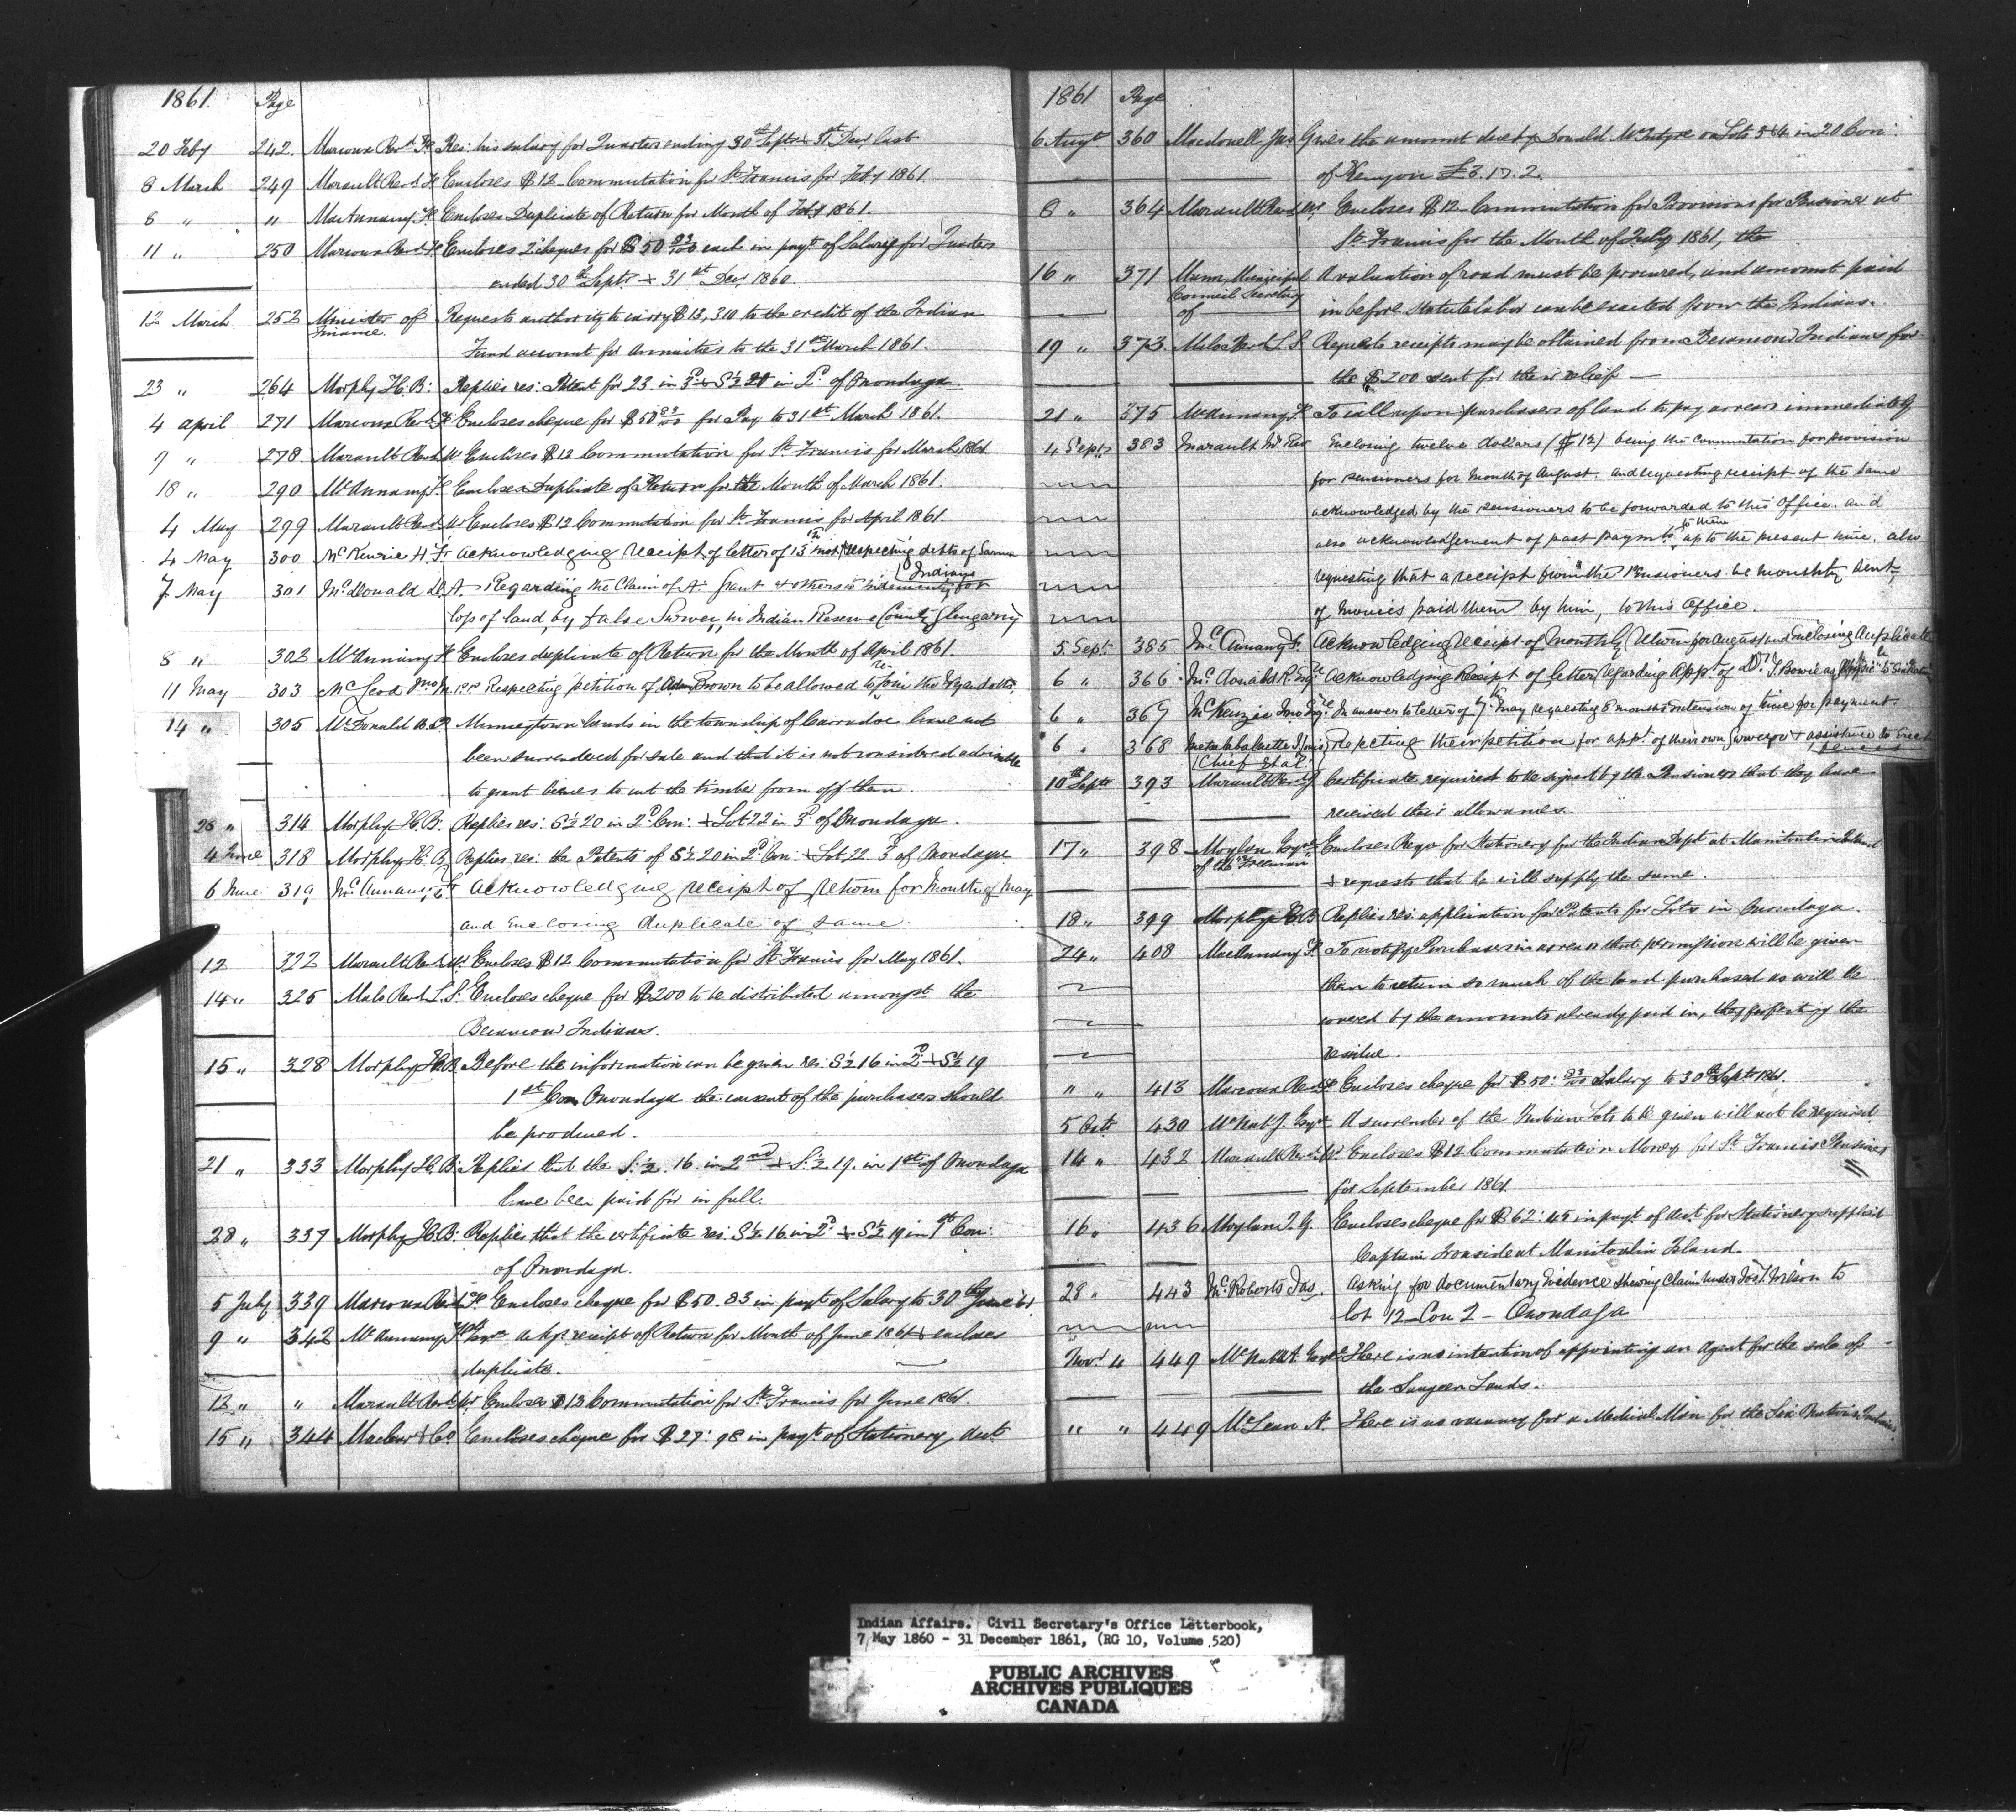 1861. Page
20 Feby 242. Marcoux Revd F. Re: his salary for Quarters ending 30th Septr & 31st Decr last
8 March 249 Marault Revd Enclose $12 Commutation for St Francis for Feby 1861.
8 " " MacAnnany F. Encloses Duplicate of Return for Month of Feby 1861.
11 " 250 Marcoux Revd F Encloses 2 cheques for $50 83/100 each in payt of Salary for Quarters
ended 30th Septr & 31st Decr 1860
12 March 252 Minister of Finance Requests authority to carry $13,310 to the credit of the Indian
Fund account for annuities to the 31st March 1861.
23 " 264 Morphy H. B: Replies res: Patent for 23 in 3d & S½ 20 in 2d of Onondaga
4 April 271 Marcoux Revd F Encloses cheque for $50 83/100 for Pay to 31st March 1861.
9 " 278. Marault Revd Mr Encloses $12 Commutation for St Francis for March 1861
18 " 290 McAnnany F. Encloses Duplicate of Return for the Month of March 1861.
4 May 299 Marault Revd Mr Encloses $12 Commutation for St Francis for April 1861.
4 May 300 McKenzie H. F. Acknowledging receipt of letter of 13th inst respecting debts of Sarnia Indians
7 May 301 McDonald D. A. Regarding the Claim of A. Grant & others to indemnity for
loss of land by false Survey in Indian Reserve County Glengarry
8 " 302 McAnnany F Encloses duplicate of Return for the Month of April 1861.
11 May 303 McLeod Jno M.P.P Respecting petition of Adam Brown to be allowed to re-join the Wyandotts.
14 " 305 McDonald Munceytown lands in the township of Carradoc have not
been surrendered for sale and that it is not considered advisable
to grant licences to cut the timber from off them.
28 " 314 Morphy H. B. Replies res: S½ 20 in 2d Con: & Lot 22 in 3d of Onondaga.
4 June 318 Morphy H. B. Replies res: the Patents of S½ 20 in 2d Con: & Lot 22 3d of Onondaga
6 June 319 McAnnany, F. Acknowledging receipt of return for Month of May
and Enclosing duplicate of same.
12 322 Marault Revd Mr. Encloses $12 Commutation for St Francis for May 1861.
14 " 325 Malo Revd L. S. Encloses cheque for $200 to be distributed amongst the
Becancour Indians.
15 " 328 Morphy H. B. Before the information can be given res: S½ 16 in 2d & S½ 19
1st Con Onondaga the consent of the purchasers should
be produced.
21 " 333 Morphy H. B. Replies that the S.½. 16. in 2nd & S.½ 19. in 1st of Onondaga
have been paid for in full.
28 " 337 Morphy H. B. Replies that the certificate res: S½ 16 in 2d & S½ 19 in 1st Con:
of Onondaga.
5 July 339 Marcoux Revd F. Encloses cheque for $50.83 in payt of Salary to 30th June 61
9 " 342 McAnnany F Esqre ackgs receipt of Return for Month of June 1861 & encloses
duplicate.
12 " " Marault Revd Mr. Encloses $12 Commutation for St Francis for June 1861.
15 " 344 Maclear & Co Encloses cheque for $27.98 in payt of Stationery acct.
1861 Page
6 Augt 360 Macdonell Jas Gives the amount due by Donald McIntyre on Lots 3 & 4 in 20 Con:
of Kenyon £3.17.2.
8 " 364 Marault Revd Mr Encloses $12 Commutation for Provisions for Pensioner at
St Francis for the Month of July 1861, the
16 " 371 Municipal Council Secretary of A valuation of road must be procured, and amount paid
in before Statute labor can be exacted from the Indians.
19 " 373. Malo Revd L. S. Requests receipts may be obtained from Becancour Indians for
the $200 sent for their relief
21 " 375 McAnnany F. To call upon purchasers of land to pay arrears immediately
4 Septr 383 Marault Mr Rev Enclosing twelve dollars ($12) being the commutation for provision
for pensioners for month of August and requesting receipt of the same
acknowledged by the pensioners to be forwarded to this Office. and
also acknowledgement of past paymts to them up to the present time. also
requesting that a receipt from the Pensioners be monthly sent,
of monies paid them by him, to this Office.
5 Sept. 385 McAnnany F. Acknowledging receipt of monthly return for August and Enclosing duplicate
6 " 366 McDonald R. Esqre Acknowledging Receipt of letter regarding Appt of Dr. J. Bowie as Physicn to Six Nations
6 " 367 McKenzie Jno Esqre In answer to letter of 7th May requesting 6 months extension of time for payment.
6 " 368 Louis Chief & al. Rejecting their petition for appt of their own Surveyor & assistance to Erect fences
10th Septr 393 Marault Revd Certificate required to be signed by the Pensioners that they have
received their allowances.
17 " 398 Moylan Esqre of the "Freeman" Encloses Requn for Stationery for the Indian Dept at Manitoulin Island
& requests that he will supply the same.
18 " 399 Morphy H. B Replies res: application for Patents for Lots in Onondaga.
24 " 408 MacAnnany F. To notify Purchasers in arrears that permission will be given
them to retain so much of the land purchased as will be
covered by the amounts already paid in, they forfeiting the
residue.
" " 413 Marcoux Revd F Encloses cheque for $50: 83/100 Salary to 30th Septr 1861.
5 Octr 430 McNab J. Esqre A surrender of the Indian Lots to be given will not be required
14 " 432 Marault Revd Mr. Encloses $12 Commutation Money for St Francis Pensioners
for September 1861.
16 " 436 Moylan J. G. Encloses cheque for $62: 45 in payt of Acct for Stationery supplied
Captain Ironside at Manitoulin Island.
28 " 443 McRoberts Jas. asking for documentary Evidence shewing claim under Jos. Wilson to
lot 12 Con 2 - Onondaga
Novr 4 449 McNabb A Esqre There is no intention of appointing an Agent for the sale of
the Saugeen Lands.
" " 449 McLean A. There is no vacancy for a Medical Man for the Six Nations Indians.
Indian Affairs. Civil Secretary's Office Letterbook,
7 May 1860 - 31 December 1861, (RG 10, Volume 520)
PUBLIC ARCHIVES
ARCHIVES PUBLIQUES
CANADA